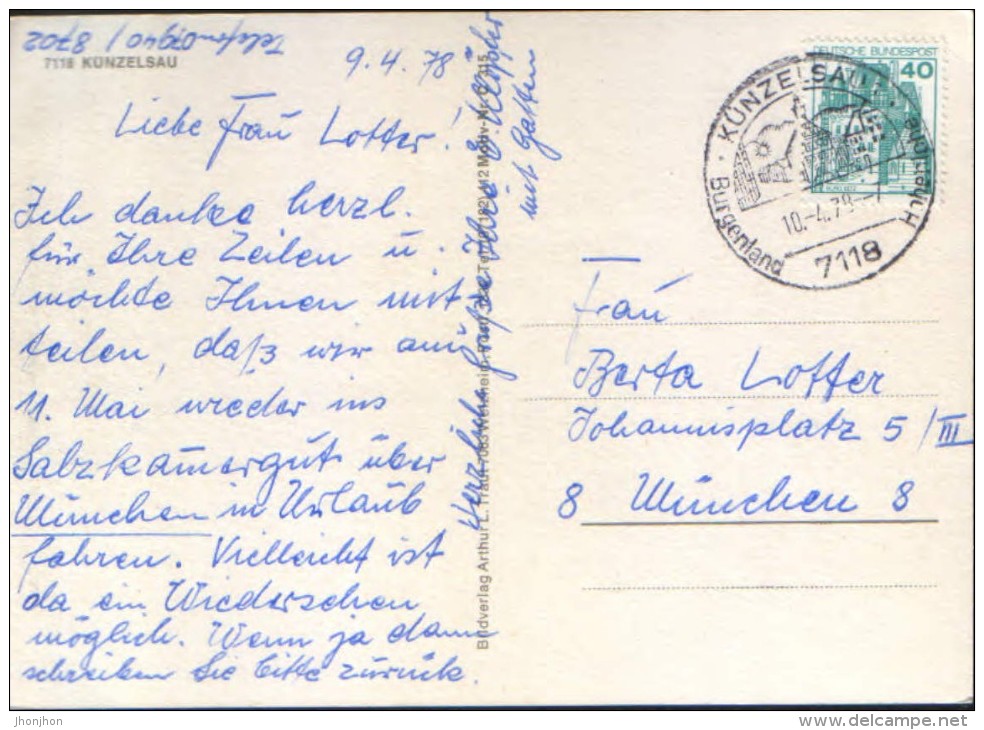 Telefon 07940 / 8702
7118 KÜNZELSAU
9.4.78
Liebe Frau Lotter!
Ich danke herzl.
für Ihre Zeilen u.
möchte Ihnen mit
teilen, daß wir am
11. Mai wieder ins
Salzkammergut über
München in Urlaub
fahren. Vielleicht ist
da ein Wiedersehen
möglich. Wenn ja dann
schreiben Sie bitte zurück.
Herzliche Grüße Ihre E.
mit Gatten
Bildverlag Arthur F. Traut
DEUTSCHE BUNDESPOST
40
KÜNZELSAU
Burgenland Hohenlohe
10.-4.78
7118
Frau
Berta Lotter
Johannisplatz 5/III
8 München 8
jhonjhon
www.delcampe.net